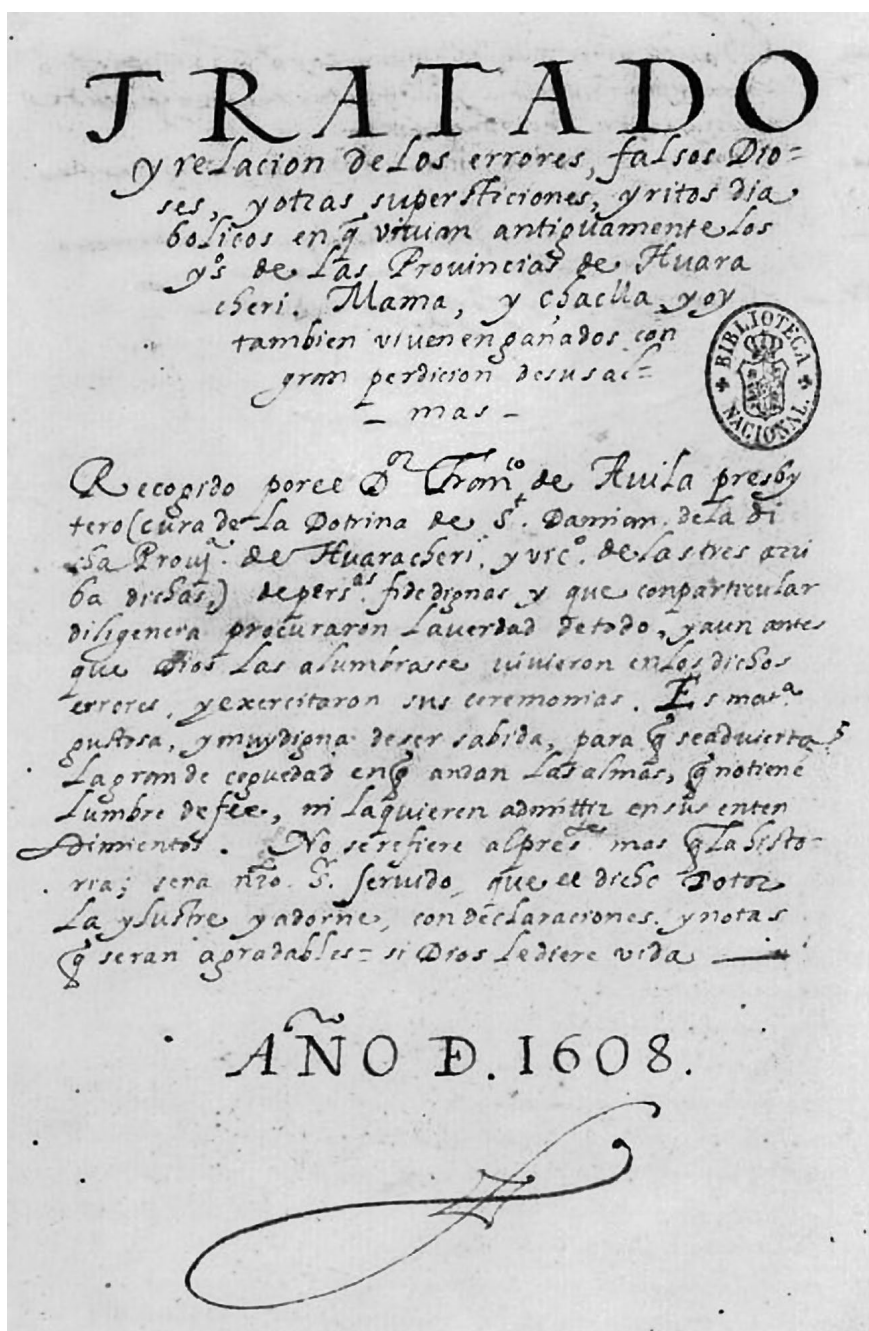 TRATADO
y relacion de los errores, falsos Dio=
ses, y otras supersticiones, y ritos dia
bolicos en q̃ vivian antiguamente los
yº̣s de las Provincias de Huara
cheri. Mama, y chaclla y oy
tambien viven engañados con
gran perdicion de sus al=
- mas -
BIBLIOTECA
NACIONAL.
Recogido por el Dºʳ Franᶜᵒ de Avila presby
tero (cura de la Dotrina de Sᵗ. Damian de la di
cha Provᵃ. de Huaracheri. y vicº. de las tres arri
ba dichas,) de persᵃˢ. fidedignas y que con particular
diligencia procuraron la verdad de todo, y aun antes
que Dios las alumbrasse vivieron en los dichos
errores, y exercitaron sus ceremonias. Es matᵃ
gustosa, y muy digna de ser sabida, para q̃ se advierta
la grande ceguedad en q̃ andan las almas, q̃ no tienē
lumbre de fee, ni la quieren admittir en sus enten
dimientos. No se refiere al presᵗᵉ mas q̃ la histo-
ria; sera nr̃o. Sʳ. servido, que el dicho Dotor
la ylustre y adorne, con declaraciones. y notas
q̃ seran agradables= si Dios le diere vida
AÑO D. 1608.